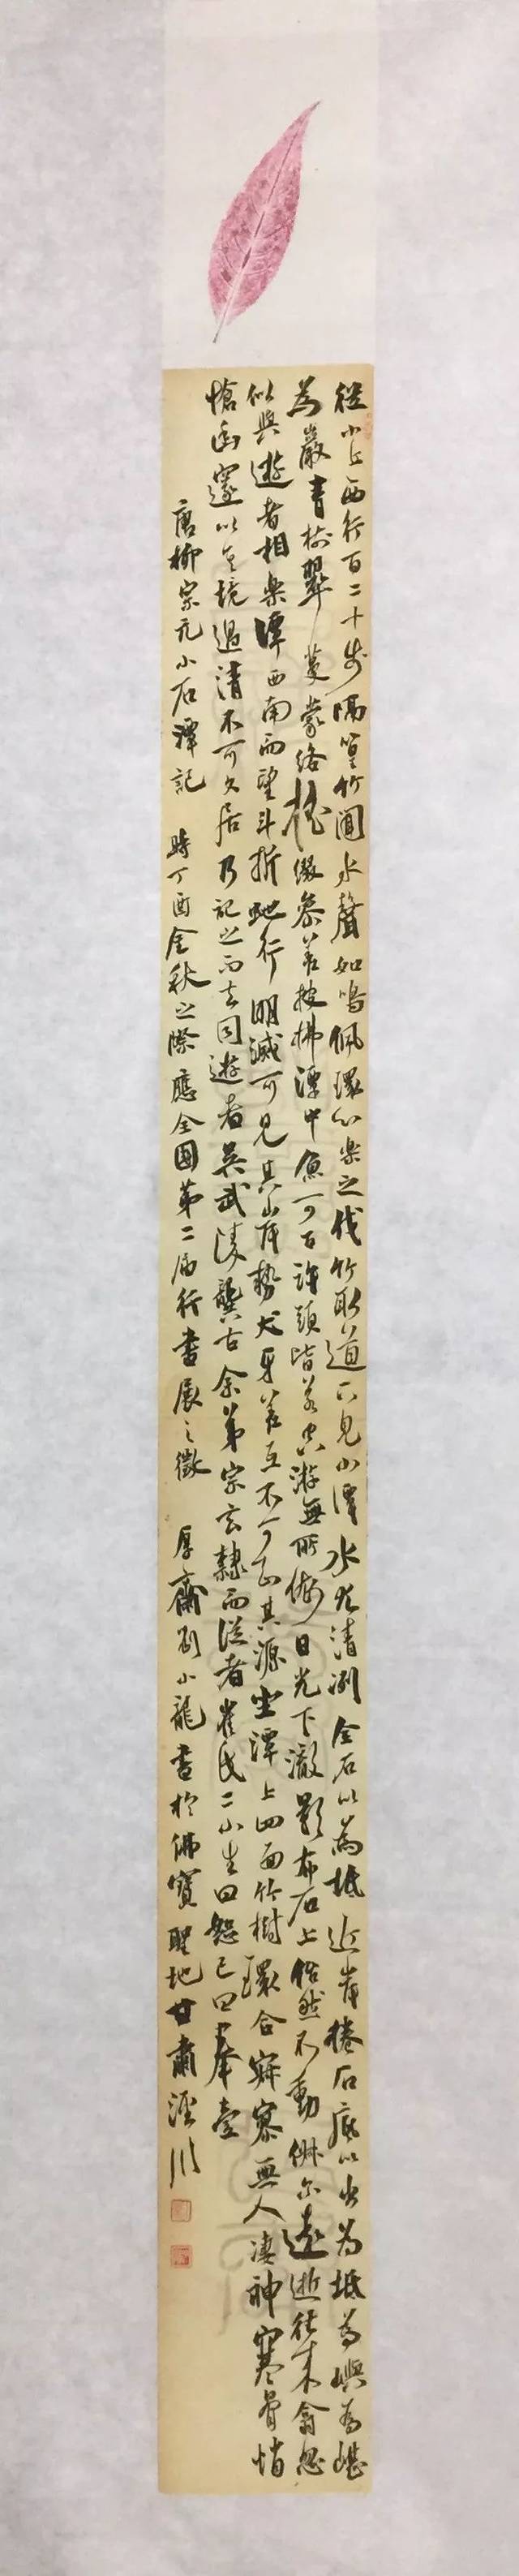 從小丘西行百二十步隔篁竹聞水聲如鳴佩環心樂之伐竹取道下見小潭水尤清冽金石以為坻近岸捲石底以出為坻為嶼為嵁
為巖青樹翠蔓蒙絡搖綴參差披拂潭中魚可百許頭皆若空游無所依日光下澈影布石上佁然不動俶尔遠逝往來翕忽
似與遊者相樂潭西南而望斗折蛇行明滅可見其岸勢犬牙差互不可知其源坐潭上四面竹樹環合寂寥無人凄神寒骨悄
愴幽邃以其境過清不可久居乃記之而去同遊者吳武陵龔古余弟宗玄隸而從者崔氏二小生曰恕己曰奉壹
唐柳宗元小石潭記 時丁酉金秋之際應全國第二屆行書展之徵 厚齋劉小龍書於佛寶聖地甘肅涇川